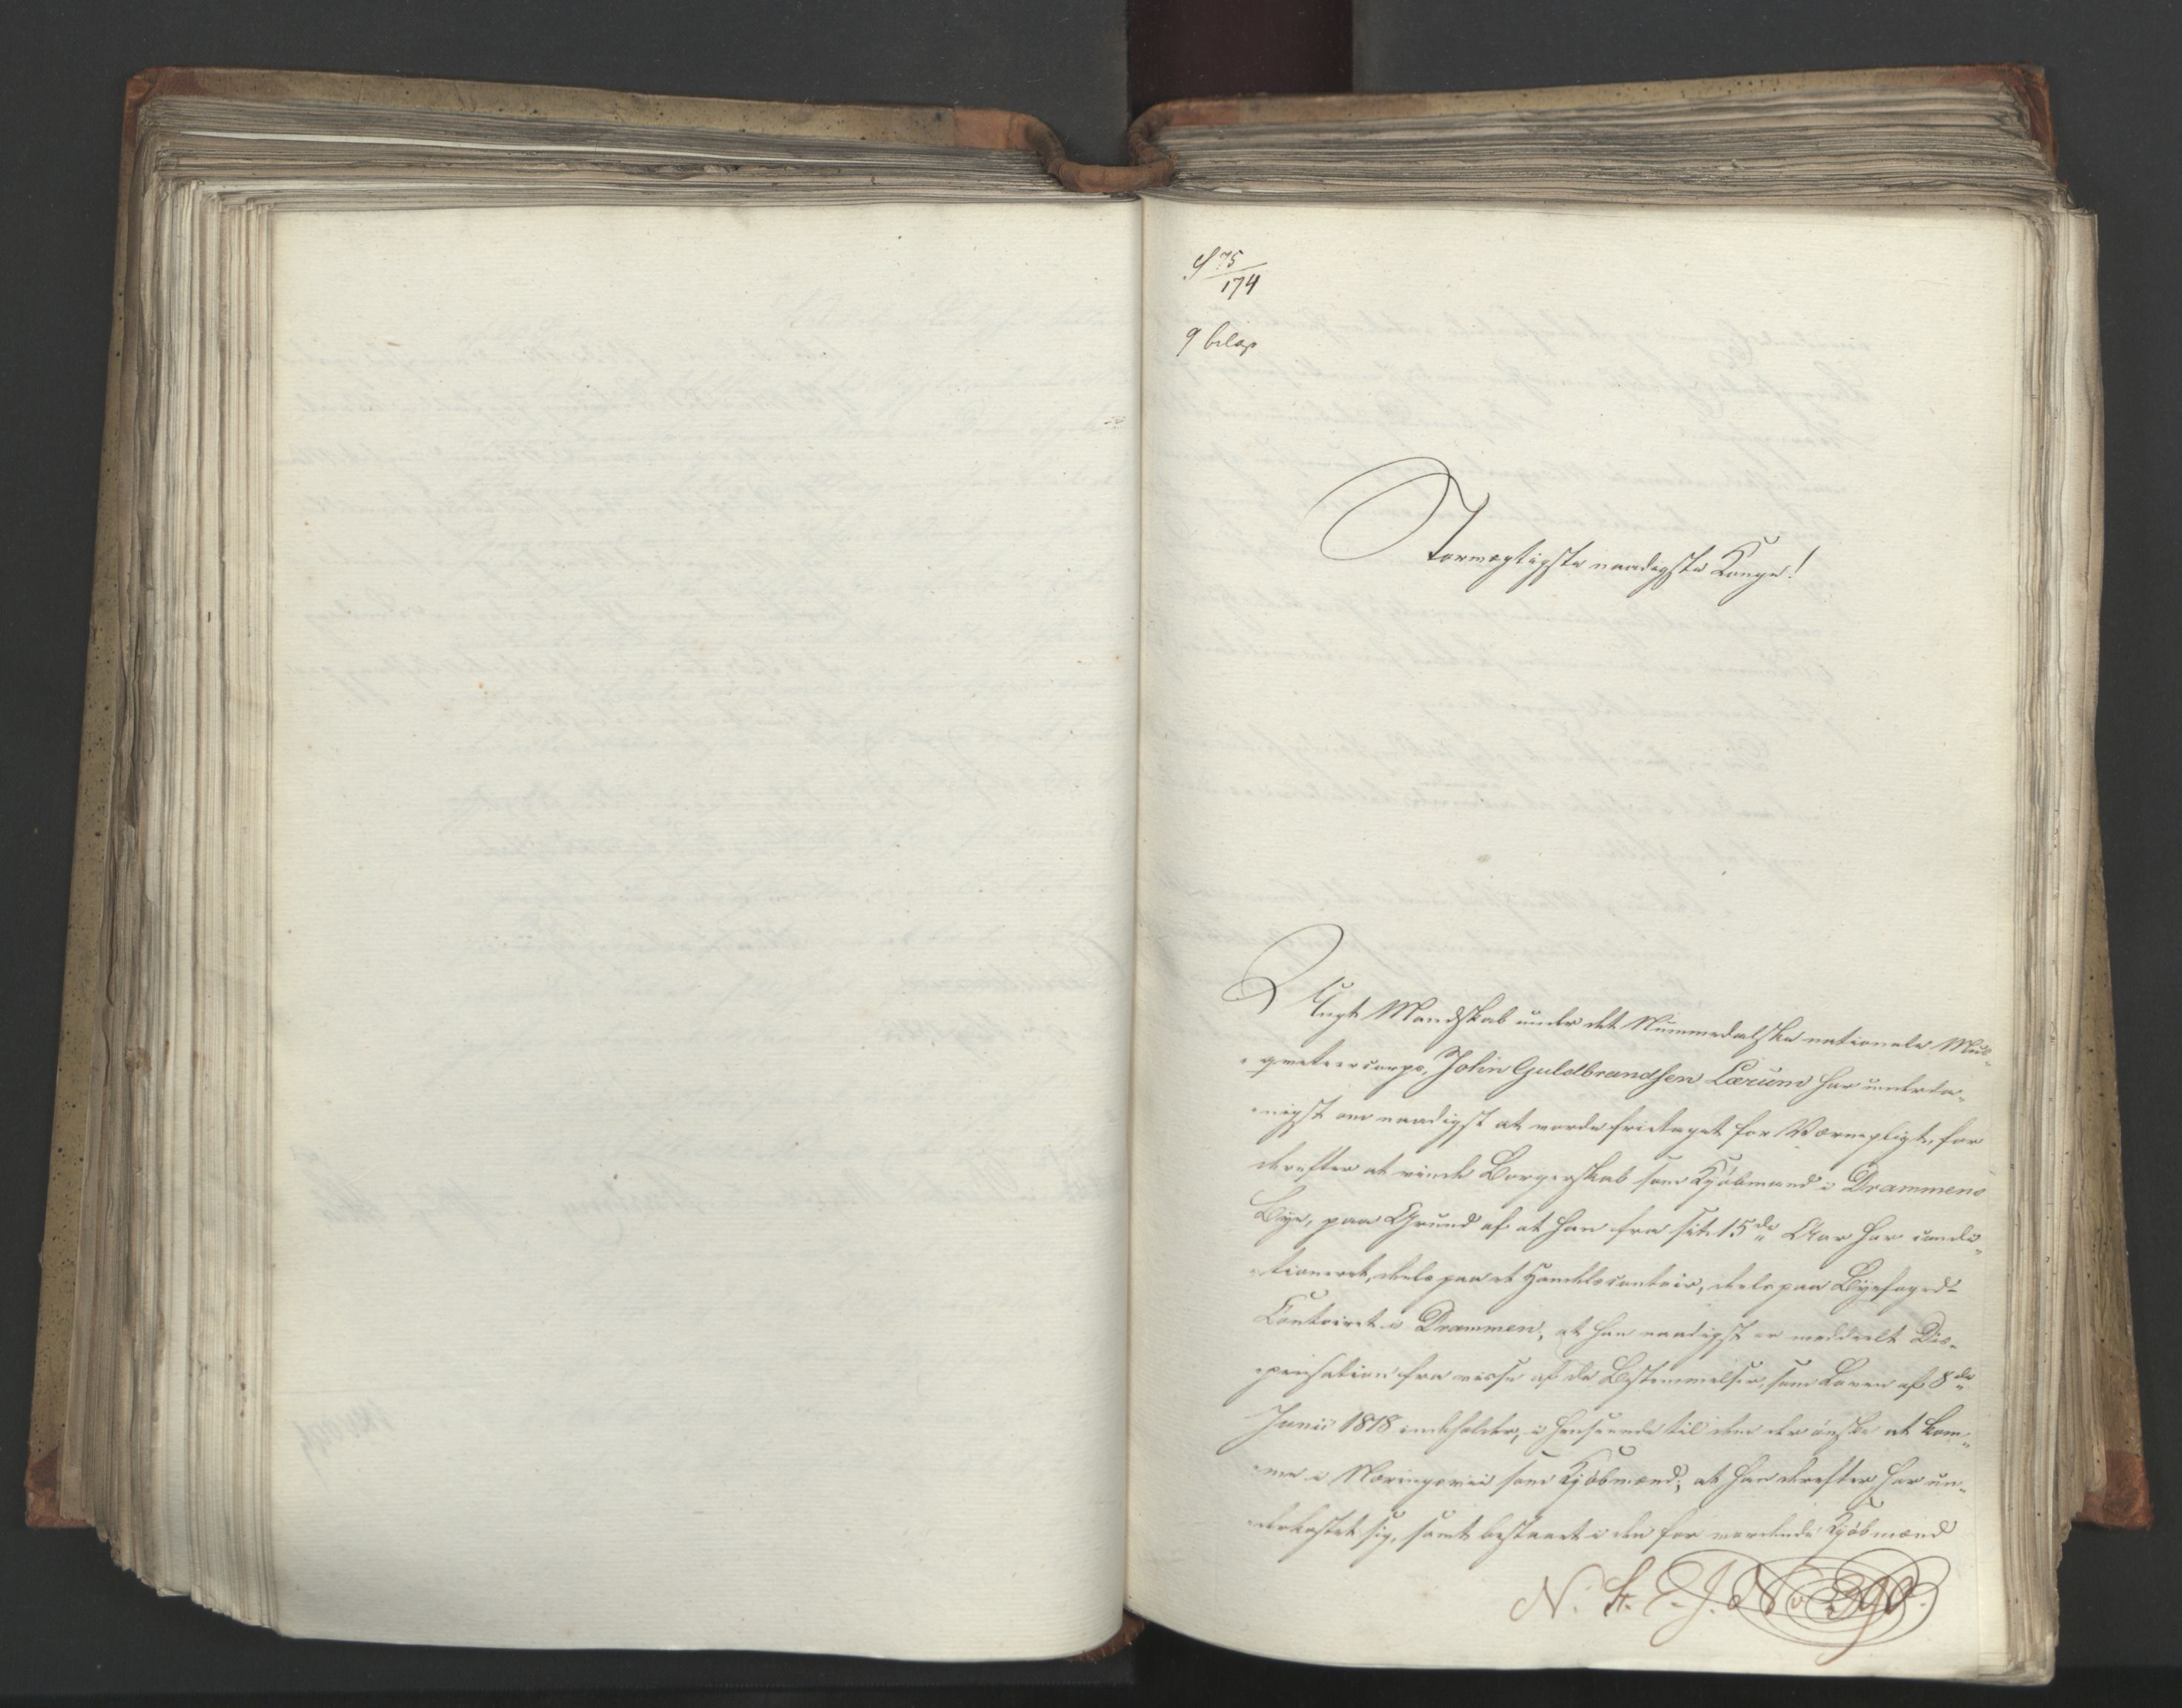 S 75/174
9 bilag
Stormægtigste naadigste Konge!
Ungt Mandskab under det Nummedalske nationale Mus-
qveteercorps, John Guldbrandsen Lærum har underda-
nigst om naadigst at vorde fritaget for Værnepligt, for
derefter at vinde Borgerskab som Kjøbmand i Drammens
Bye, paa Grund af at han fra sit 15de Aar har condi-
tioneret, deels paa et Handelscontoir, deels paa Byefoged-
Contoiret i Drammen, at han naadigst er meddeelt Dis-
pensation fra visse af de Bestemmelser, som Loven af 8de
Junii 1818 indeholder, i Henseende til dem der ønske at kom-
me i Næringsvei som Kjøbmænd; at han derefter har un-
derkastet sig, samt bestaaet i den for vordende Kjøbmænd
N. St. E. J. No